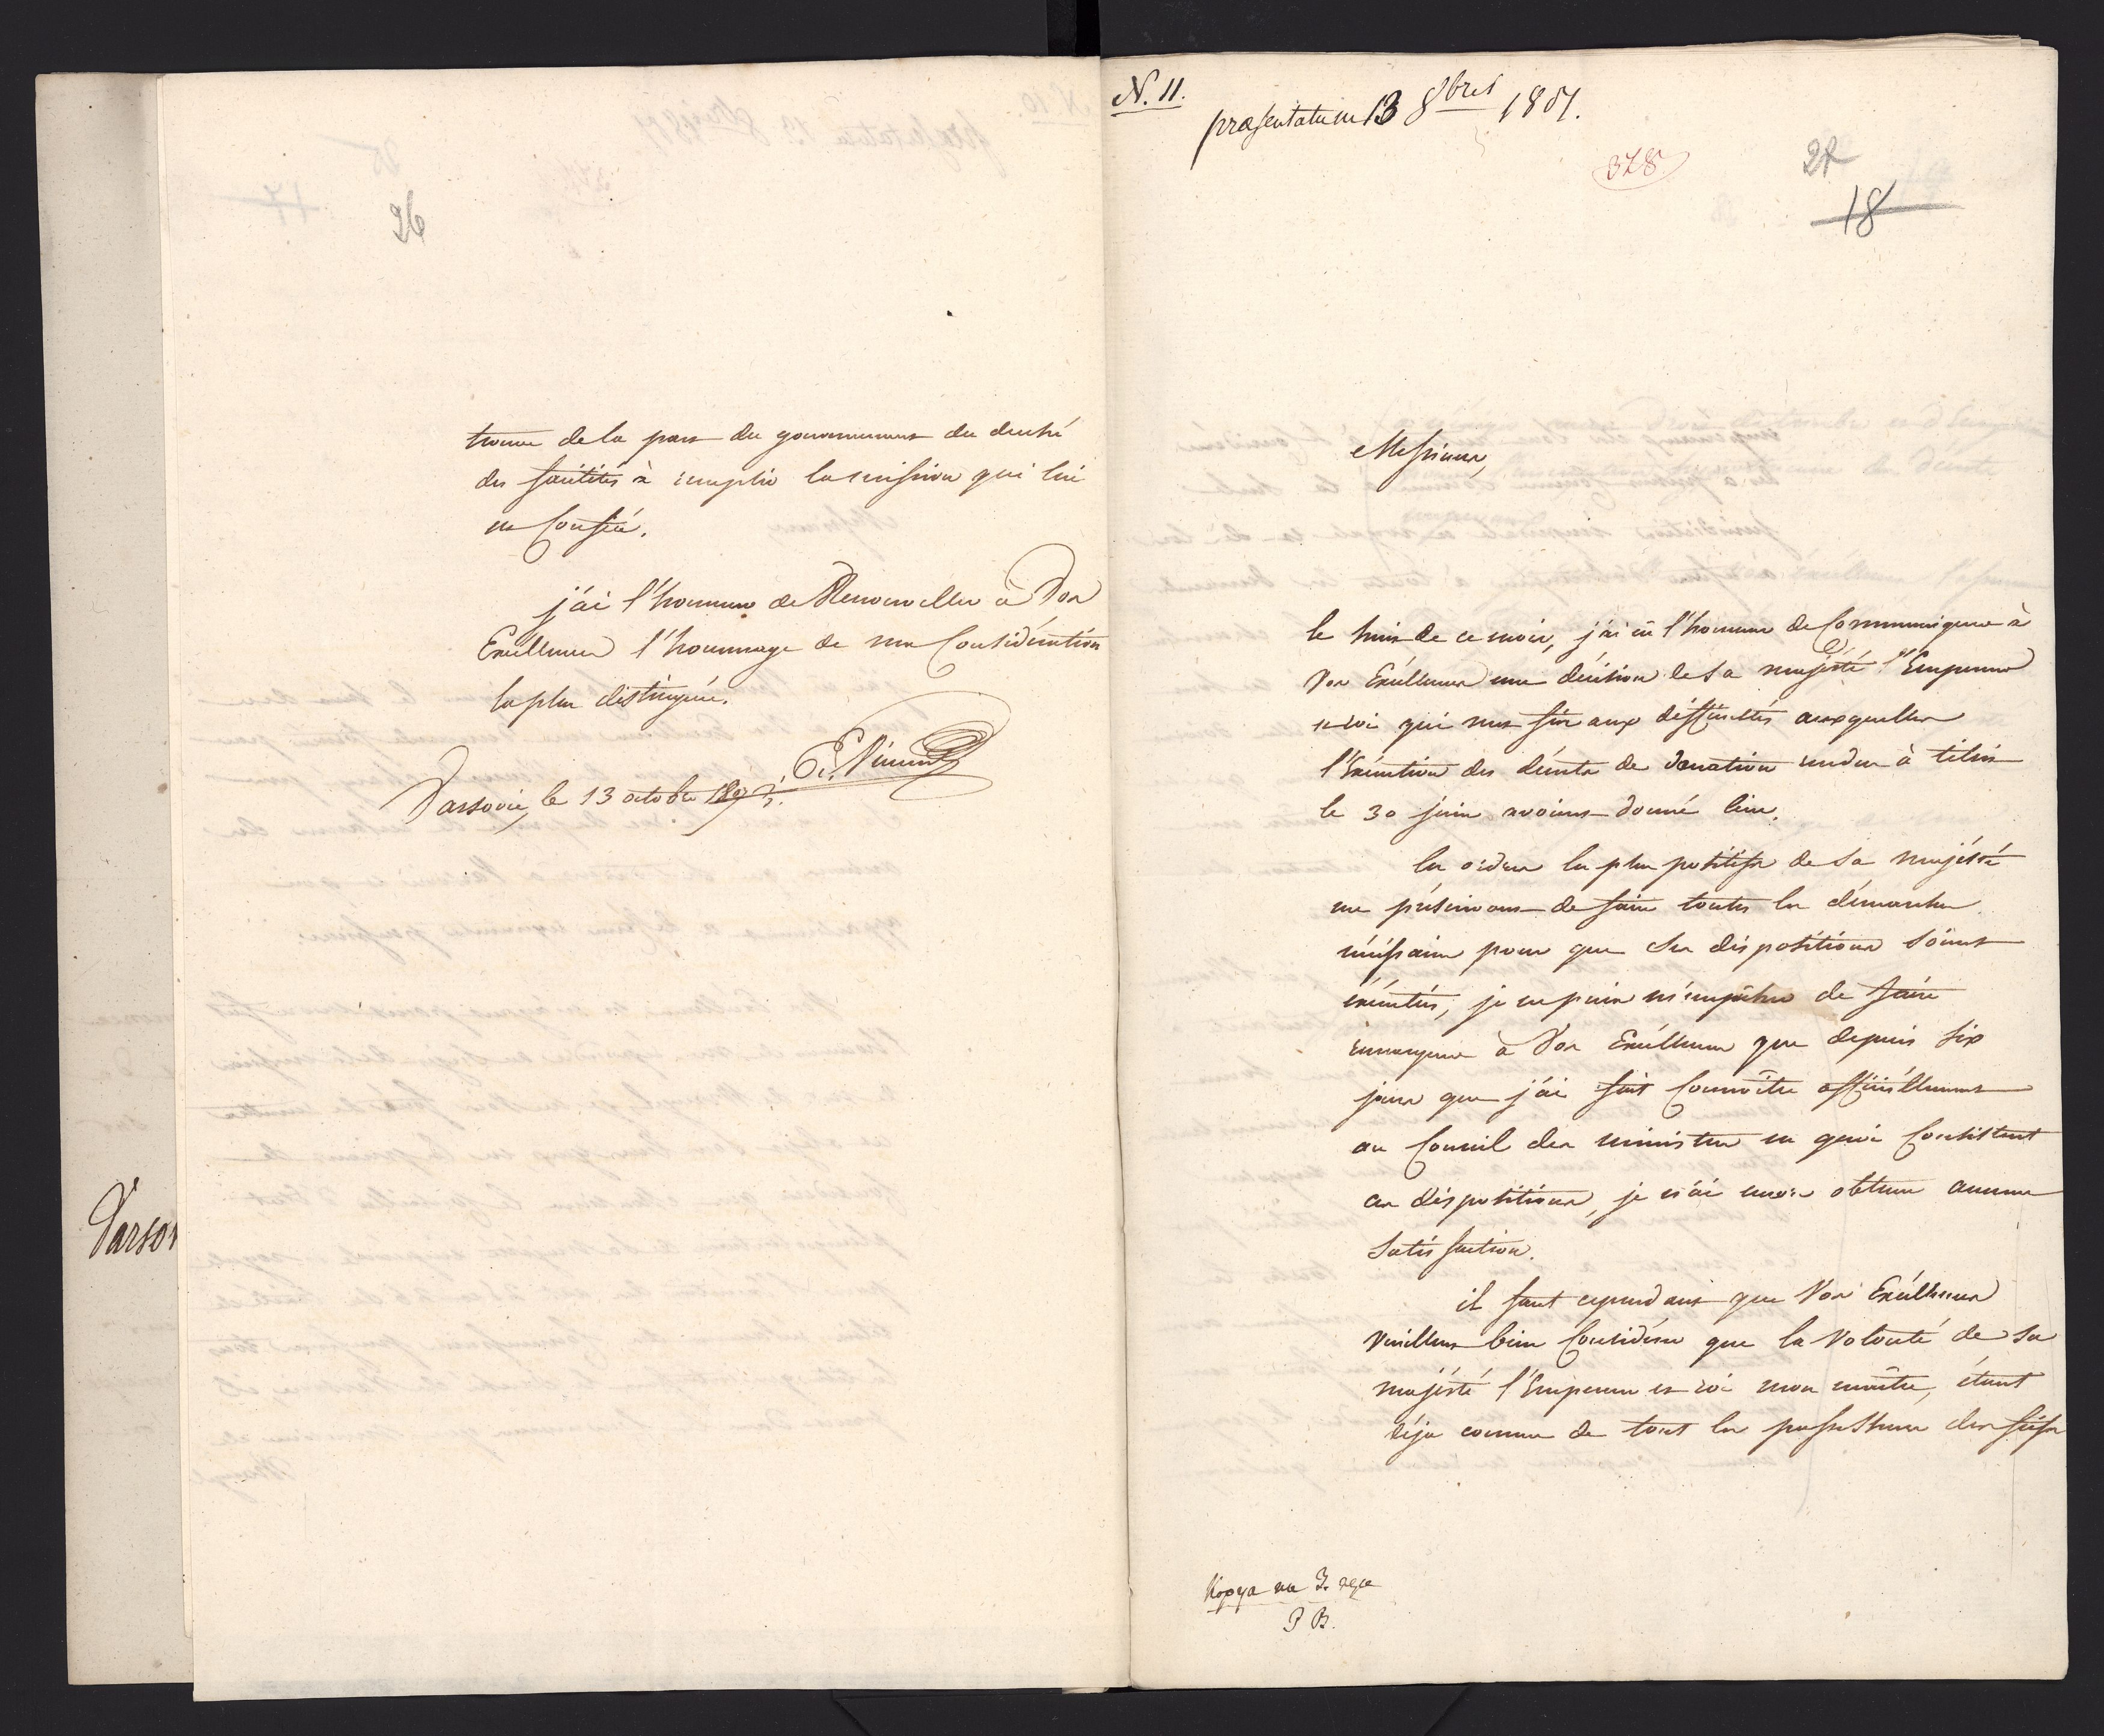 26
trouver de la part du gouvernement du duché
des facilités à remplir la mission qui lui
est confiée.
j'ai l'honneur de Renouveller à Vos
Excellences l'hommage de ma Considération
la plus distinguée.
Et. Vincent
Varsovie, le 13 octobre 1807.
Varsov
N. 11.
præsentatum 13 8bris 1807.
378.
27
18
Messieurs,
le huit de ce mois, j'ai eû l'honneur de Communiquer à
Vos Excéllences une décision de Sa majesté l'Empereur
et roi qui met fin aux difficultés auxquelles
l'Exécution des décrets de donation rendus à tilsit
le 30 juin avoient donné lieu.
les ordres les plus positifs de Sa majésté
me préscrivant de faire toutes les démarches
nécéssaires pour que ses dispositions soient
éxécutées, je ne puis m'empêcher de faire
remarquer à Vos Excéllences que depuis six
jours que j'ai fait Connoître officiéllement
au Conseil des ministres en quoi Consistent
ces dispositions, je n'ai encore obtenu aucune
Satisfaction.
il faut cependant que Vos Excéllences
veuillent bien Considérer que la volonté de Sa
majésté l'Empereur et roi mon maître, étant
déja connue de tous les possesseurs des fiefs
Kopya na 3. ręce
P B.